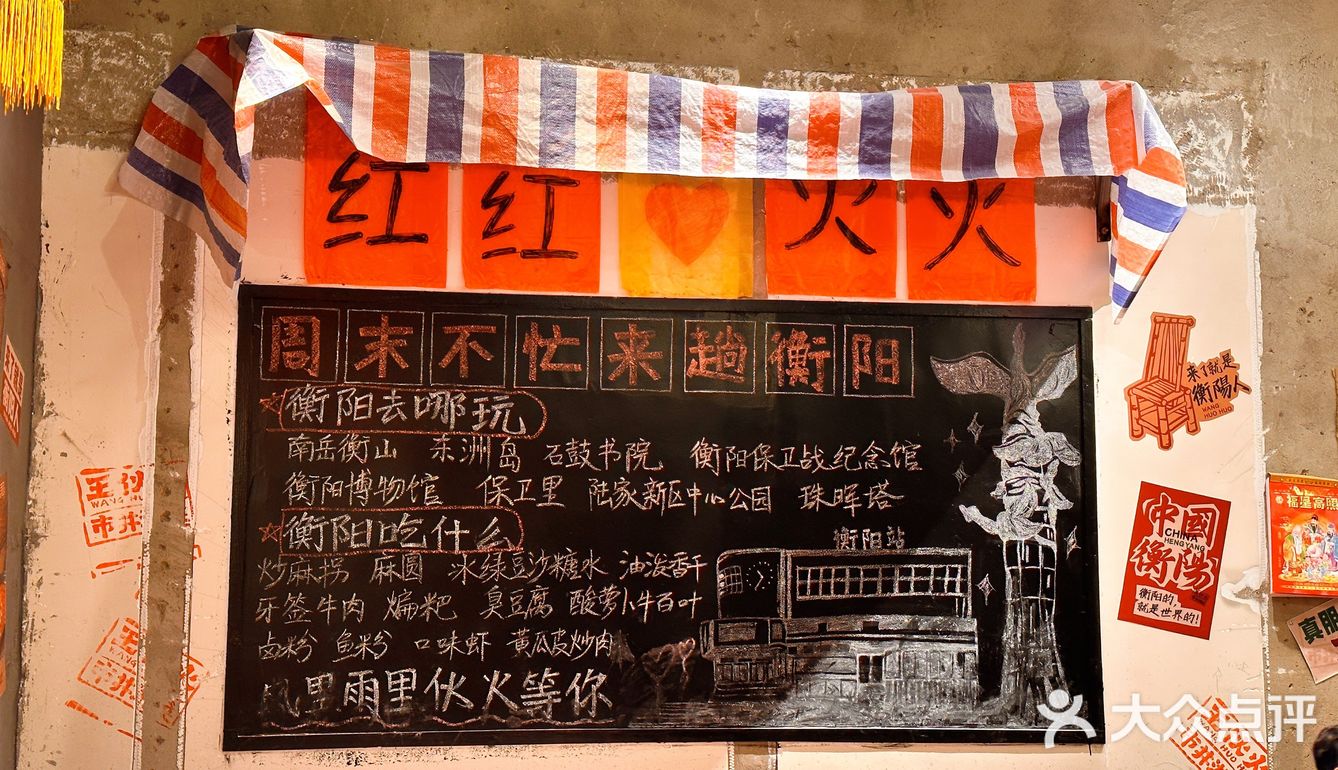 红红火火
周末不忙来趟衡阳
衡阳去哪玩
南岳衡山 东洲岛 石鼓书院 衡阳保卫战纪念馆
衡阳博物馆 保卫里 陆家新区中心公园 珠晖塔
衡阳吃什么
炒麻拐 麻圆 冰绿豆沙糖水 油泼香干
牙签牛肉 煸粑 臭豆腐 酸萝卜牛百叶
卤粉 鱼粉 口味虾 黄瓜皮炒肉
风里雨里伙火等你
衡阳站
来了就是
衡陽人
WANG
HUO HUO
中國
CHINA
HENGYANG
衡陽
衡阳的,
就是世界的!
福星高照
真
王伙
WANG HU
市井
大众点评